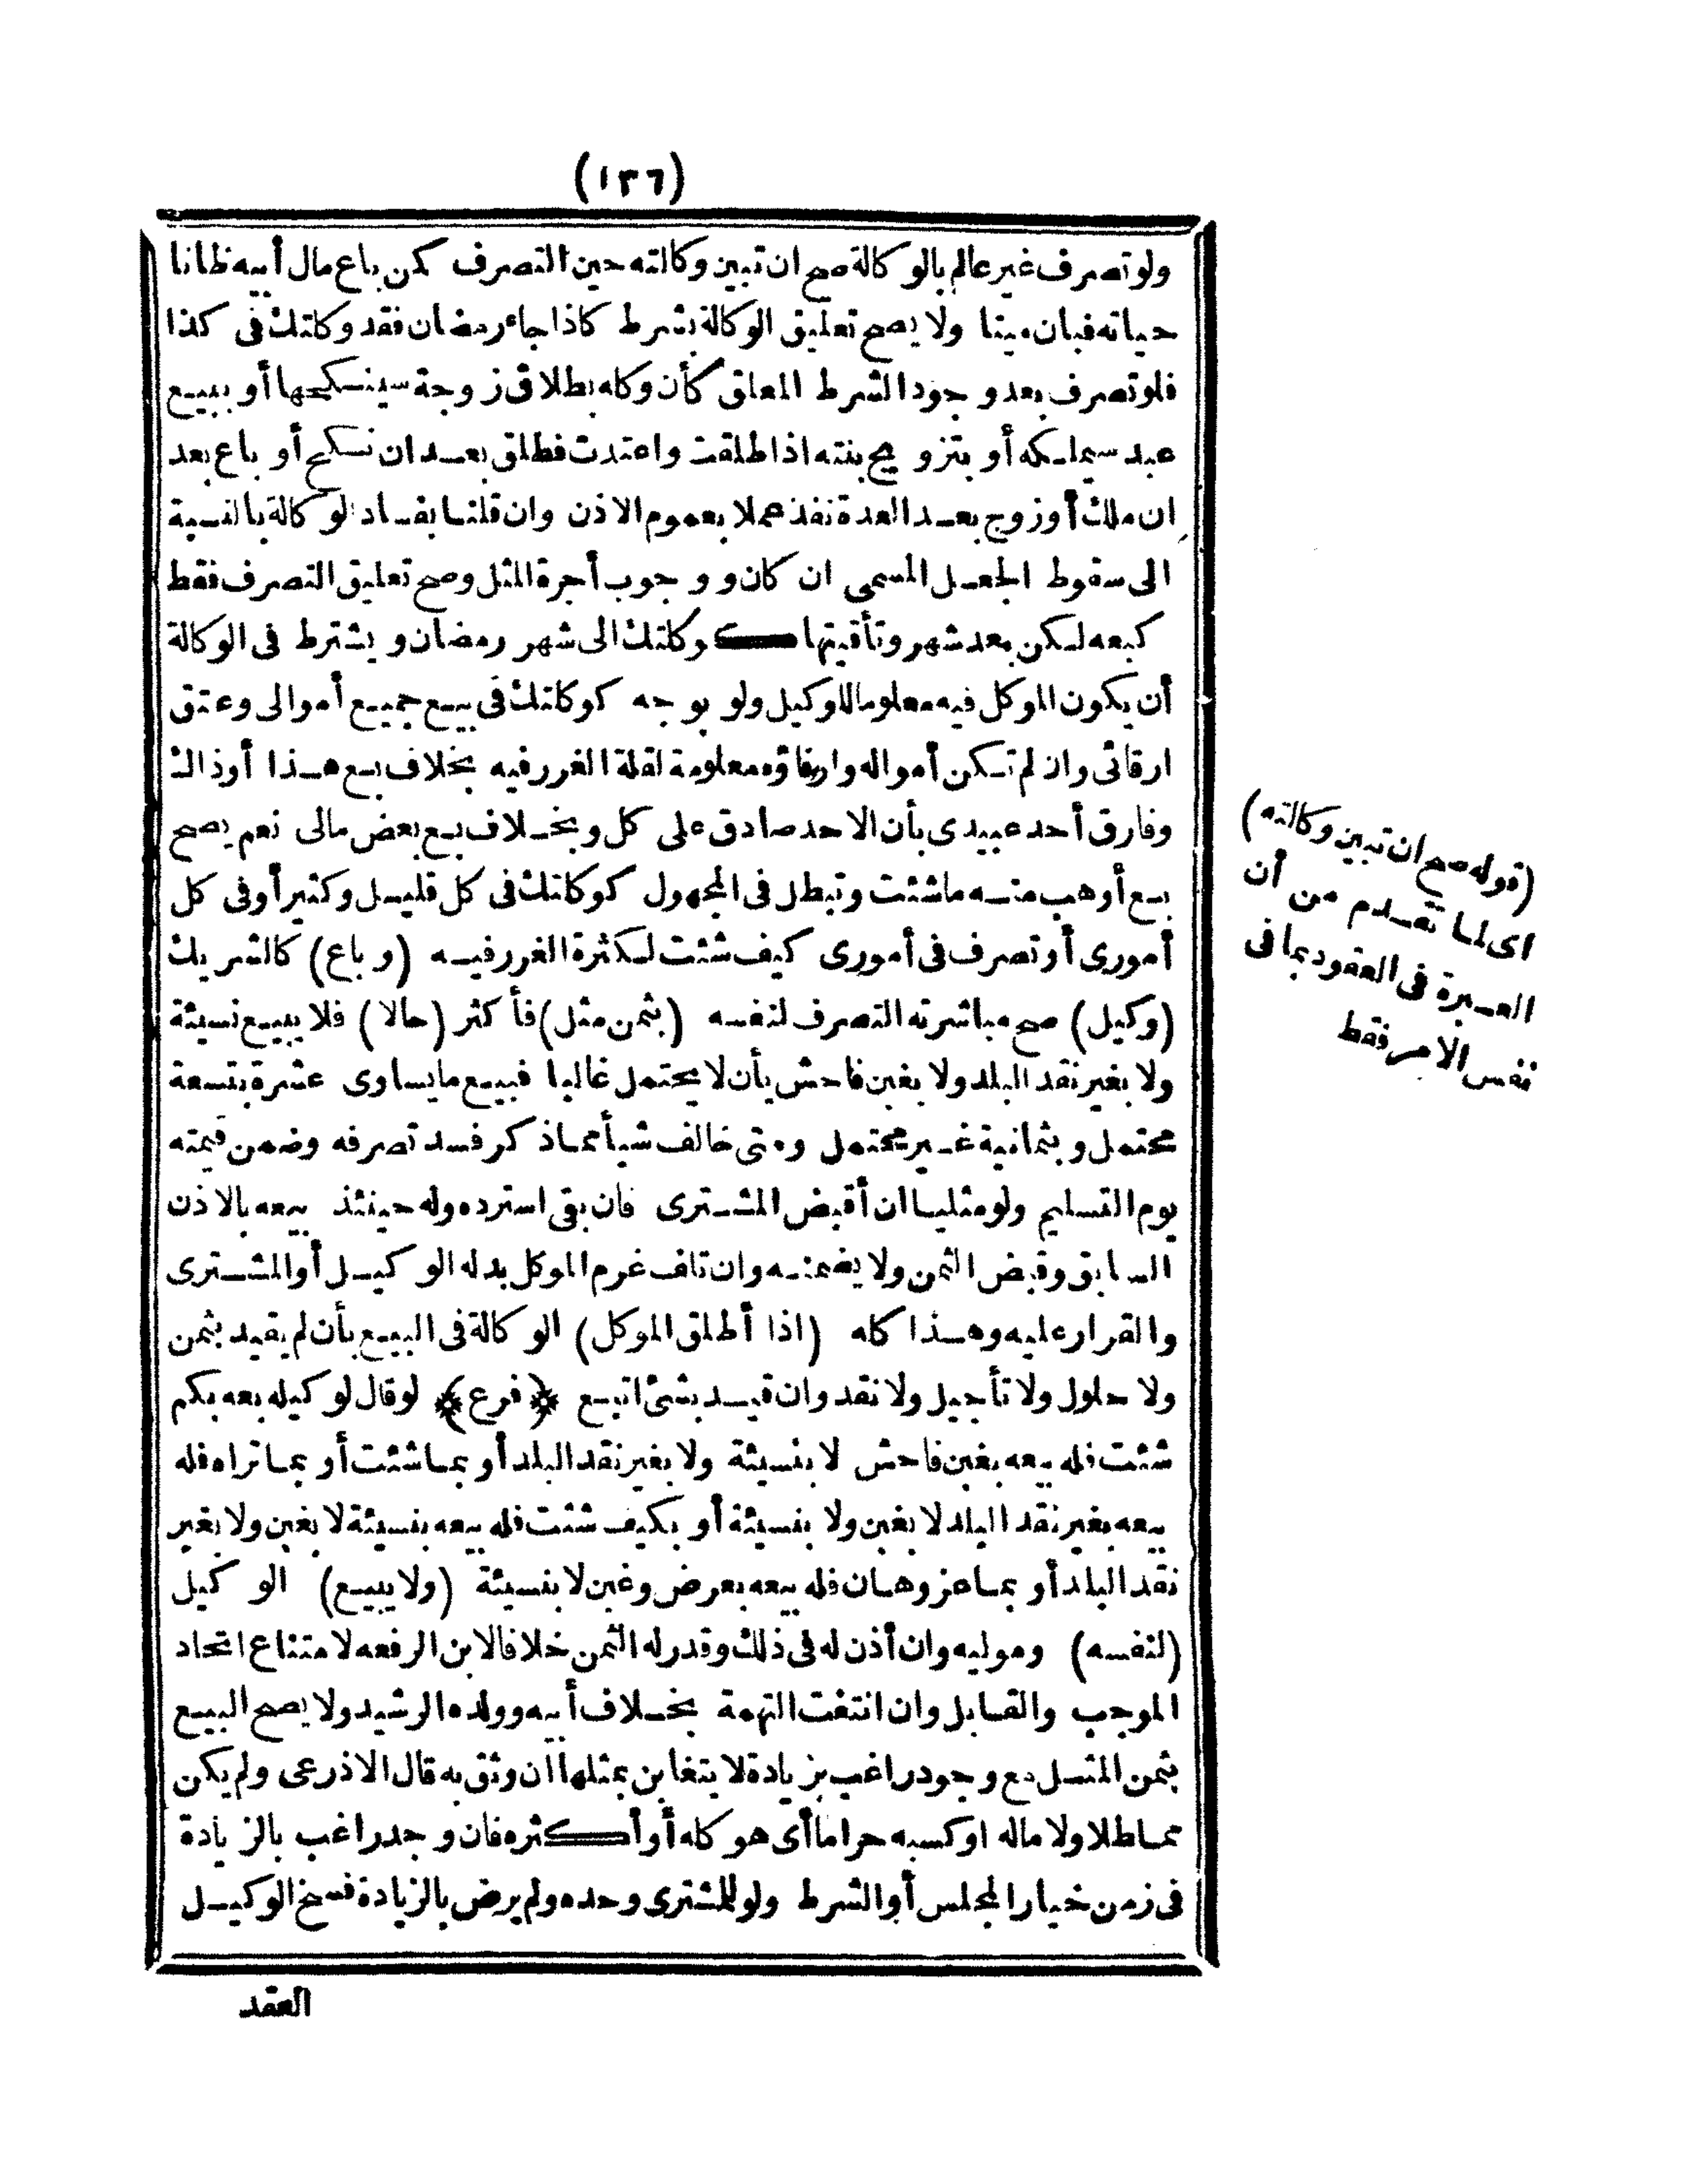 (١٣٦)
ولو تصرف غير عالم بالوكالة صح ان تبين وكالته حين التصرف كمن باع مال أبيه ظانا
حياته فبان ميتا ولا يصح تعليق الوكالة بشرط كاذا جاء رمضان فقد وكلتك فى كذا
فلو تصرف بعد وجود الشرط المعلق كأن وكله بطلاق زوجة سينكحها أو ببيع
عبد سيملكه أو بتزويج بنته اذا طلقت واعتدت فطلق بعد ان نكح أو باع بعد
ان ملك أوزوج بعد العدة نفذ عملا بعموم الاذن وان قلنا بفساد الوكالة بالنسبة
الى سقوط الجعل المسمى ان كان ووجوب أجرة المثل وصح تعليق التصرف فقط
كبعه لكن بعد شهر وتأقيتها كوكلتك الى شهر رمضان ويشترط فى الوكالة
أن يكون الموكل فيه معلوما للوكيل ولو بوجه كوكلتك فى بيع جميع أموالى وعتق
ارقائى وان لم تكن أمواله وارقاؤه معلومة لقلة الغرر فيه بخلاف بع هذا أوذاك
وفارق أحد عبيدى بأن الاحد صادق على كل وبخلاف بع بعض مالى نعم يصح
بع أوهب منه ماشئت وتبطل فى المجهول كوكلتك فى كل قليل وكثير أوفى كل
أمورى أوتصرف فى أمورى كيف شئت لكثرة الغرر فيه (وباع) كالشريك
(وكيل) صح مباشرته التصرف لنفسه (بثمن مثل) فأكثر (حالا) فلا يبيع نسيئة
ولا بغير نقد البلد ولا بغبن فاحش بأن لا يحتمل غالبا فبيع مايساوى عشرة بتسعة
محتمل وبثمانية غير محتمل ومتى خالف شيأ مماذكر فسد تصرفه وضمن قيمته
يوم التسليم ولو مثليا ان أقبض المشترى فان بقى استرده وله حينئذ بيعه بالاذن
السابق وقبض الثمن ولا يضمنه وان تلف غرم الموكل بدله الوكيل أوالمشترى
والقرار عليه وهذا كله (اذا أطلق الموكل) الوكالة فى البيع بأن لم يقيد بثمن
ولا حلول ولا تأجيل ولا نقد وان قيد بشئ اتبع ﴿فرع﴾ لوقال لوكيله بعه بكم
شئت فله بيعه بغبن فاحش لا بنسيئة ولا بغير نقد البلد أو بما شئت أو بما تراه فله
بيعه بغير نقد البلد لا بغبن ولا بنسيئة أو بكيف شئت فله بيعه بنسيئة لا بغبن ولا بغير
نقد البلد أو بما عز وهان فله بيعه بعرض وغبن لا بنسيئة (ولا يبيع) الوكيل
(لنفسه) وموليه وان أذن له فى ذلك وقدر له الثمن خلافا لابن الرفعه لامتناع اتحاد
الموجب والقابل وان انتفت التهمة بخلاف أبيه وولده الرشيد ولا يصح البيع
بثمن المثل مع وجود راغب بزيادة لا يتغابن بمثلها ان وثق به قال الاذرعى ولم يكن
مماطلا ولا ماله اوكسبه حراما أى هو كله أوأكثره فان وجد راغب بالزيادة
فى زمن خيار المجلس أوالشرط ولو للمشترى وحده ولم يرض بالزيادة فسخ الوكيل
العقد
(قوله صح ان تبين وكالته)
اى لما تقدم من أن
العبرة فى العقود بما فى
نفس الامر فقط